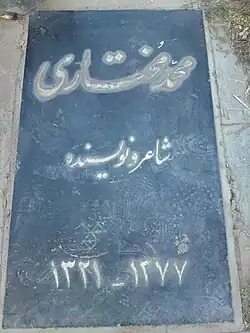 محمّد مُختاری
شاعر و نویسنده
۱۳۲۱ - ۱۳۷۷